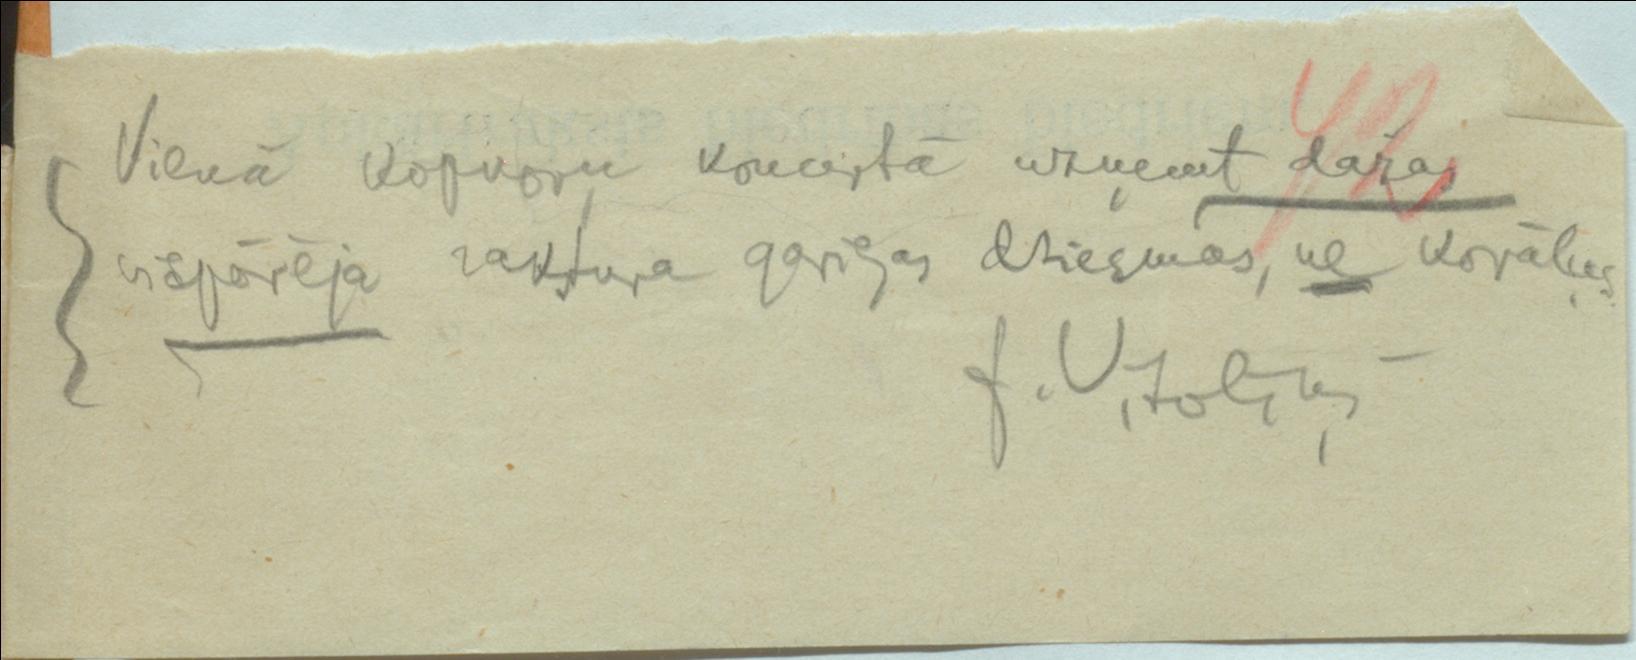 Vienā kopkoru koncertā uzņemt dažas
vispārēja rakstura garīgas dziesmas, ne korāļus
J. Vītoliņš